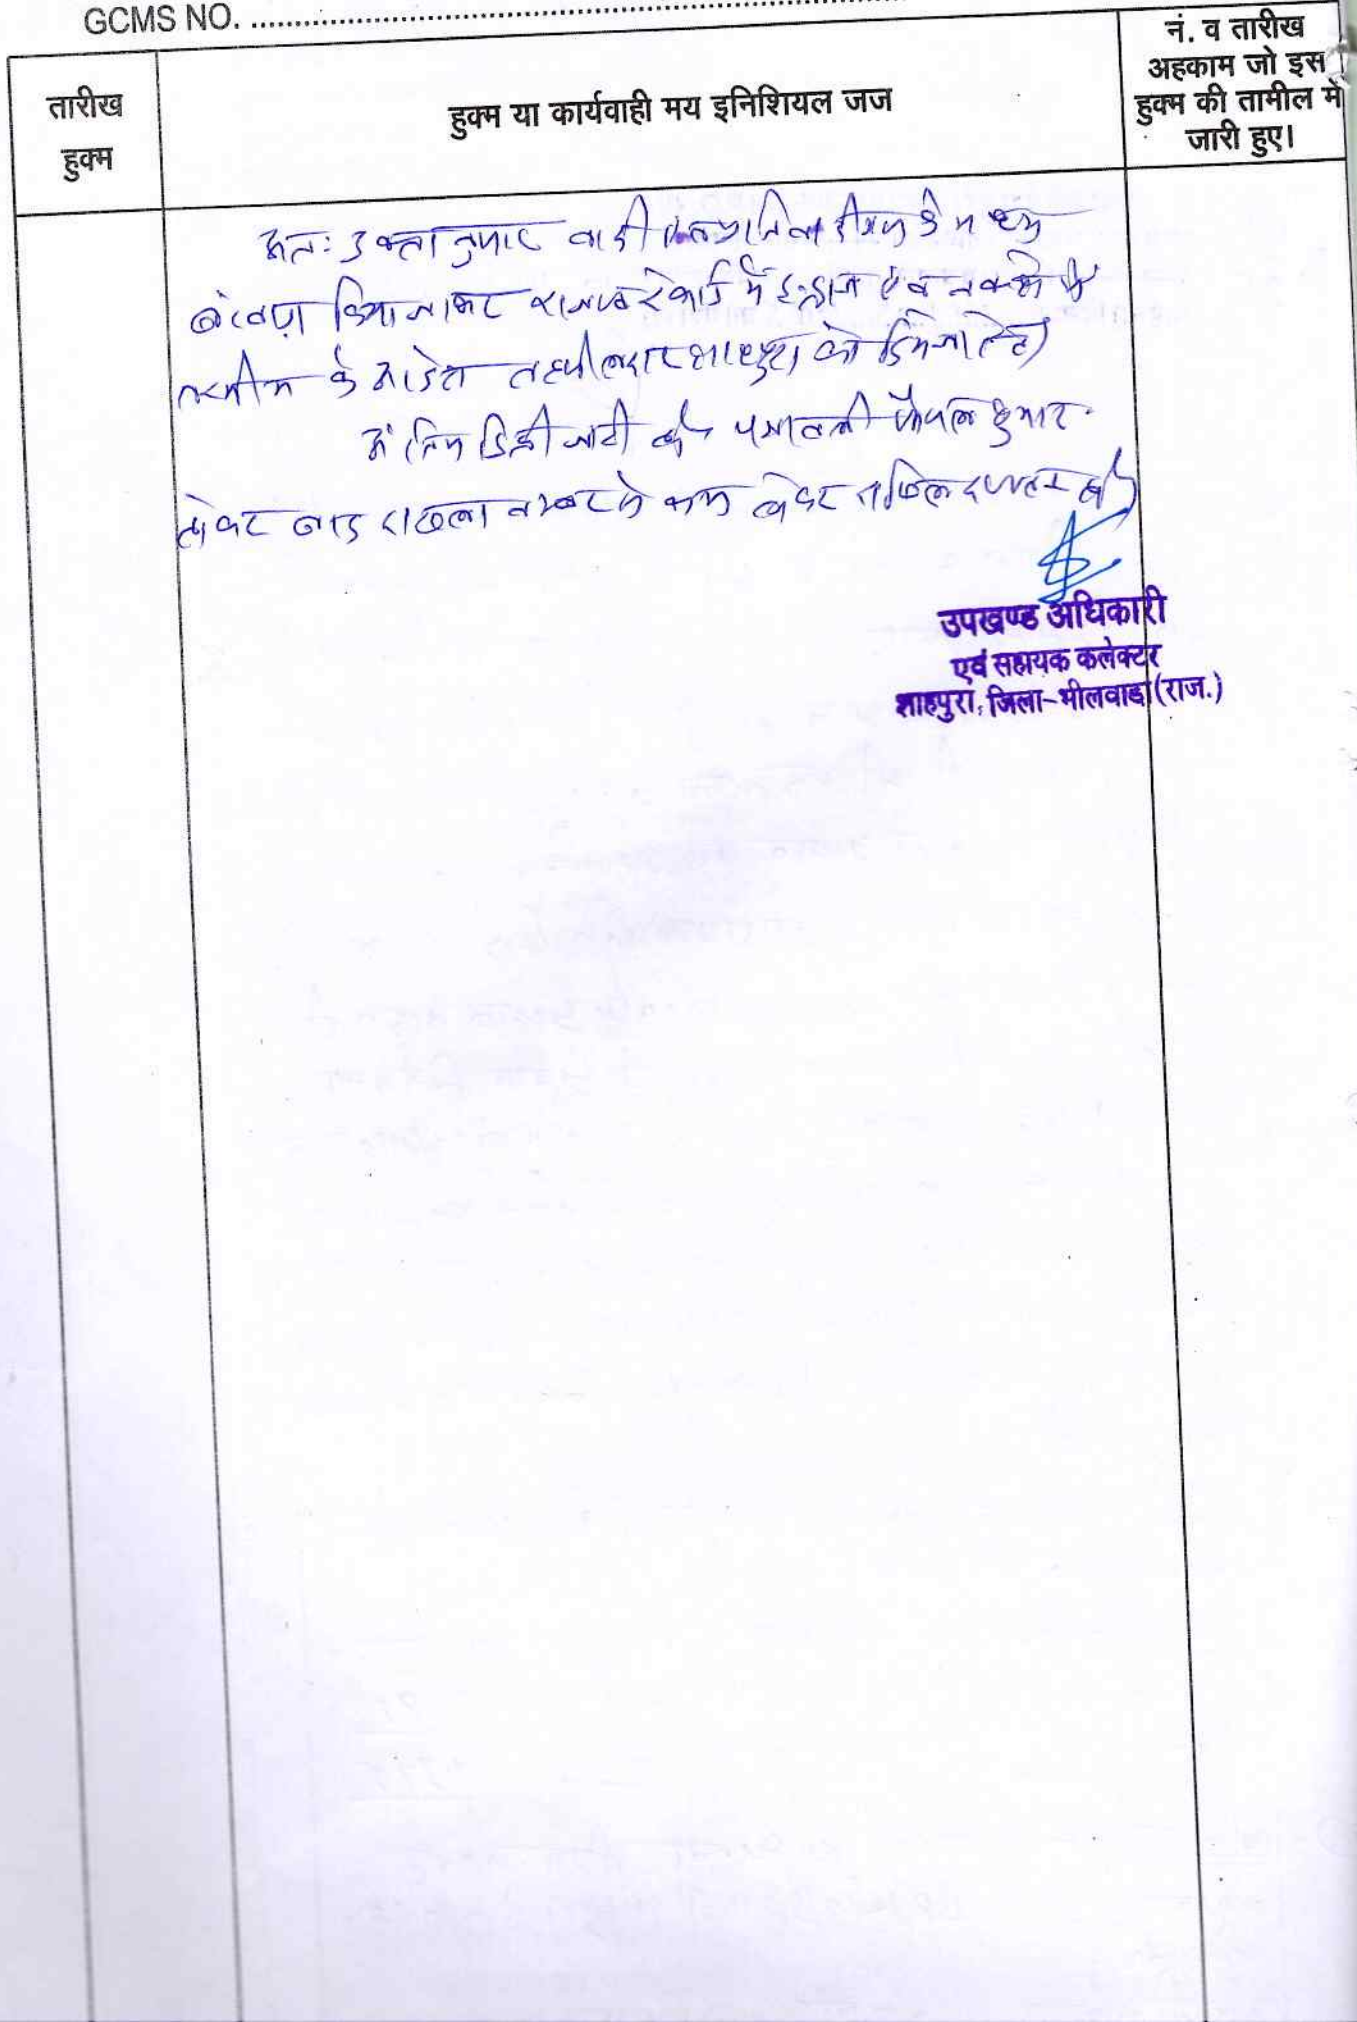 GCMS NO. ........................................
तारीख
हुक्म
हुक्म या कार्यवाही मय इनिशियल जज
नं. व तारीख
अहकाम जो इस
हुक्म की तामील में
जारी हुए।
अतः उक्तानुसार वादी प्रतिवादीगण के मध्य
बंटवारा किया जाकर राजस्व रेकार्ड में इन्द्राज एवं नक्शे में
तरमीम के आदेश तहसीलदार शाहपुरा को दिये जाते है।
अंतिम डिक्री जारी हो। पत्रावली फैसल शुमार
होकर बाद दाखला नम्बर से कम होकर दाखिल दफ्तर हो।
उपखण्ड अधिकारी
एवं सहायक कलेक्टर
शाहपुरा, जिला-भीलवाडा (राज.)